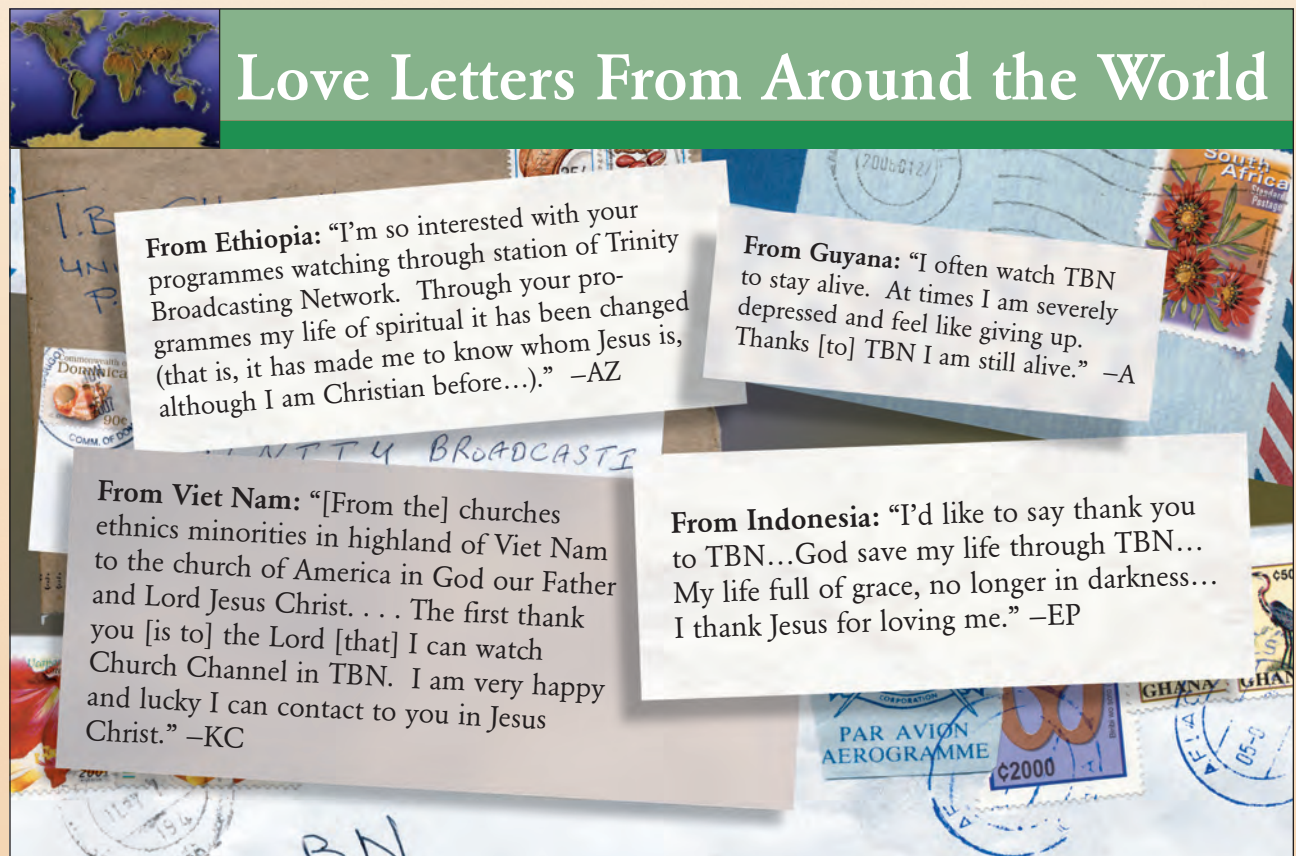 Love Letters From Around the World
From Ethiopia: “I’m so interested with your
programmes watching through station of Trinity
Broadcasting Network.  Through your pro-
grammes my life of spiritual it has been changed
(that is, it has made me to know whom Jesus is,
although I am Christian before…).”  –AZ
From Guyana: “I often watch TBN
to stay alive.  At times I am severely
depressed and feel like giving up.
Thanks [to] TBN I am still alive.”  –A
From Viet Nam: “[From the] churches
ethnics minorities in highland of Viet Nam
to the church of America in God our Father
and Lord Jesus Christ. . . . The first thank
you [is to] the Lord [that] I can watch
Church Channel in TBN.  I am very happy
and lucky I can contact to you in Jesus
Christ.” –KC
From Indonesia: “I’d like to say thank you
to TBN…God save my life through TBN…
My life full of grace, no longer in darkness…
I thank Jesus for loving me.” –EP
South
Africa
Standard
Postage
Commonwealth of
Dominica
90c
COMM. OF DO
BROADCASTI
CORPORATION
PAR AVION
AEROGRAMME
¢2000
GHANA
¢50
GHAN
05-0
2001
194
BN